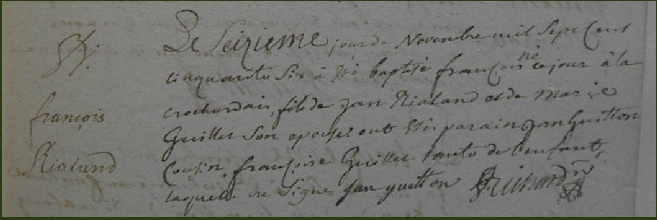 B.
françois
Rialand
Le Seizieme jour de Novembre mil Sept Cent
cinquante Six à été baptisé françois né ce jour à la
crochardais, fils de Jan Rialand et de Marie
Guillet Son epouse, ont été parain Jan Guitton
Cousin, françoise Guillet tante de l'enfant,
laquelle ne Signe Jan guitton